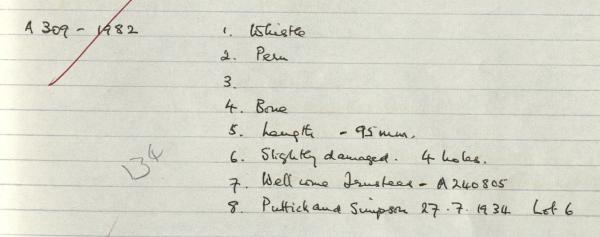 A 309 - 1982
1. Whistle
2. Peru
3.
4. Bone
5. Length - 95 mm.
6. Slightly damaged. 4 holes.
7. Wellcome Trustees - A240805
8. Puttick and Simpson 27.7.1934 Lot 6